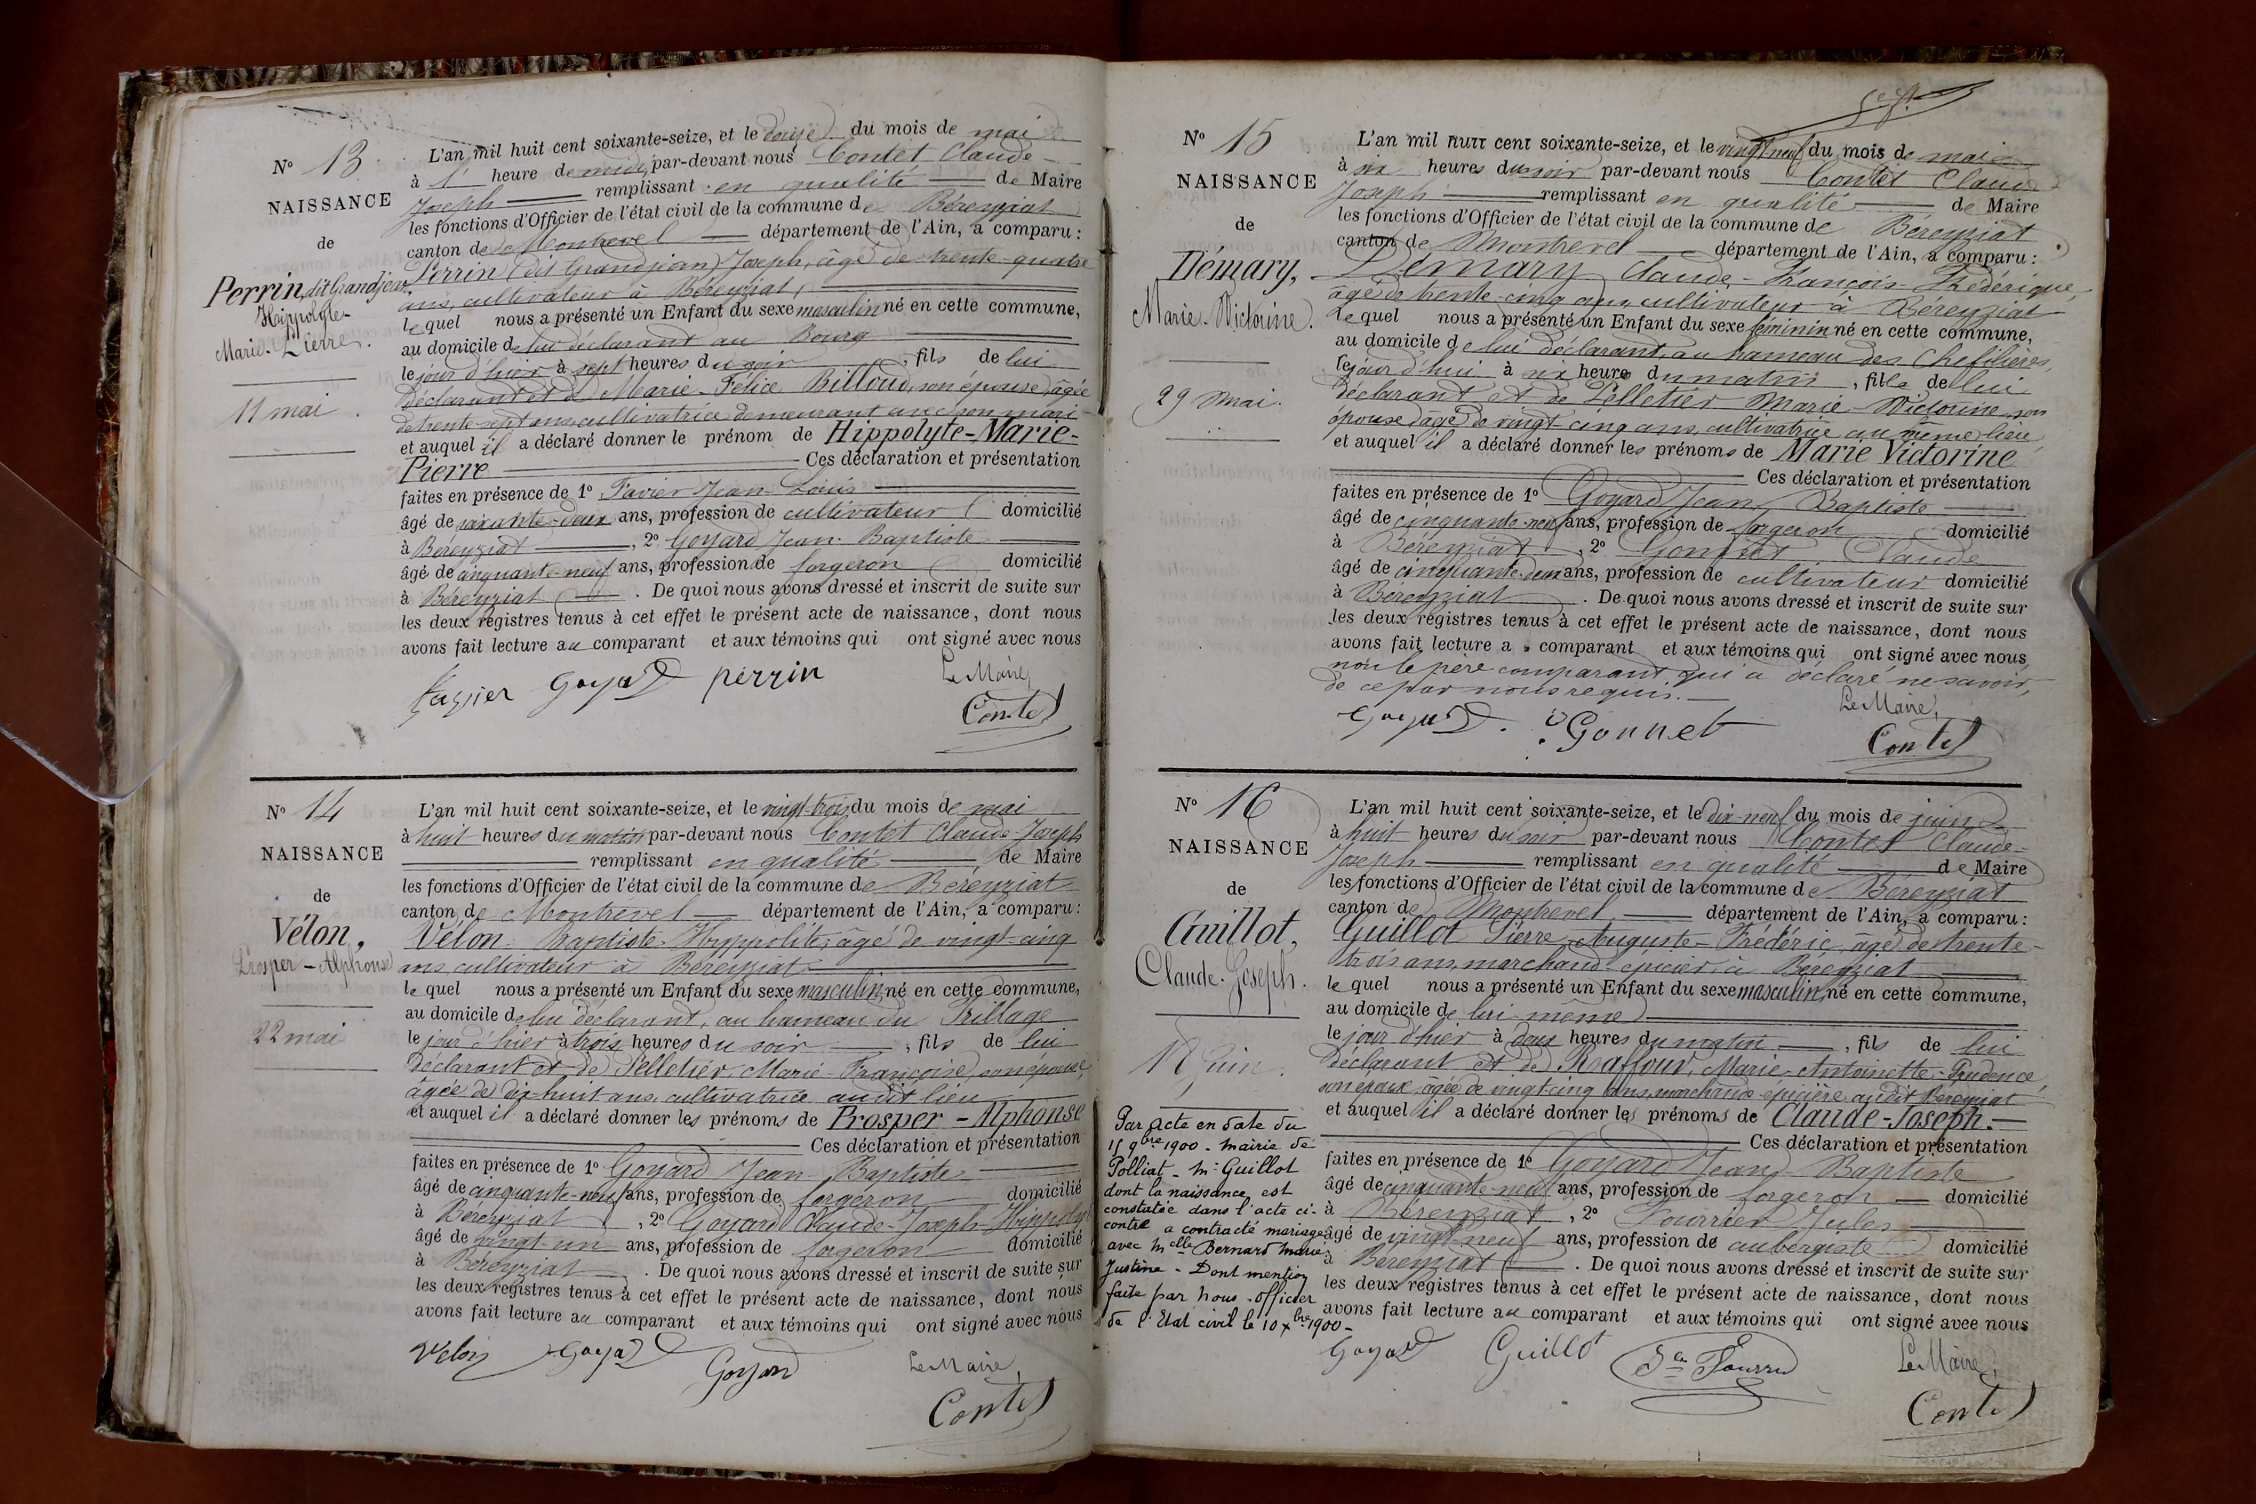 N° 13
NAISSANCE
de
Perrin, dit Grandjean,
Hippolyte-
Marie-Pierre.
11 mai
L'an mil huit cent soixante-seize, et le douze du mois de mai
à 1 heure de midi, par-devant nous Contet Claude-
Joseph remplissant en qualité de Maire
les fonctions d'Officier de l'état civil de la commune de Béreyziat
canton de Montrevel département de l'Ain, a comparu :
Perrin (dit Grandjean) Joseph, âgé de trente-quatre
ans, cultivateur à Béreyziat,
lequel nous a présenté un Enfant du sexe masculin né en cette commune,
au domicile de lui déclarant au Bourg
le jour d'hier à sept heures du soir, fils de lui
déclarant et de Marie-Félice Billoud, son épouse, âgée
de trente-sept ans, cultivatrice demeurant avec son mari
et auquel il a déclaré donner le prénom de Hippolyte-Marie-
Pierre Ces déclaration et présentation
faites en présence de 1° Favier Jean-Louis
âgé de soixante-deux ans, profession de cultivateur domicilié
à Béreyziat, 2° Goyard Jean-Baptiste
âgé de cinquante-neuf ans, profession de forgeron domicilié
à Béreyziat. De quoi nous avons dressé et inscrit de suite sur
les deux registres tenus à cet effet le présent acte de naissance, dont nous
avons fait lecture au comparant et aux témoins qui ont signé avec nous
Favier Goyard perrin Le Maire,
Contet
N° 14
NAISSANCE
de
Vélon,
Prosper-Alphonse
22 mai
L'an mil huit cent soixante-seize, et le vingt-trois du mois de mai
à huit heures du matin par-devant nous Contet Claude-Joseph
remplissant en qualité de Maire
les fonctions d'Officier de l'état civil de la commune de Béreyziat
canton de Montrevel département de l'Ain, a comparu :
Vélon Baptiste-Hyppolite, âgé de vingt-cinq
ans, cultivateur à Béreyziat
lequel nous a présenté un Enfant du sexe masculin, né en cette commune,
au domicile de lui déclarant, au hameau du Trillage
le jour d'hier à trois heures du soir, fils de lui
déclarant et de Pelletier Marie-Françoise, son épouse,
âgée de dix-huit ans, cultivatrice audit lieu
et auquel il a déclaré donner les prénoms de Prosper-Alphonse
Ces déclaration et présentation
faites en présence de 1° Goyard Jean-Baptiste
âgé de cinquante-neuf ans, profession de forgeron domicilié
à Béreyziat, 2° Goyard Claude-Joseph-Hippoly
âgé de vingt-un ans, profession de forgeron domicilié
à Béreyziat. De quoi nous avons dressé et inscrit de suite sur
les deux registres tenus à cet effet le présent acte de naissance, dont nous
avons fait lecture au comparant et aux témoins qui ont signé avec nous
Velon Goyard Goyard Le Maire,
Contet
N° 15
NAISSANCE
de
Démary,
Marie-Victorine.
29 mai.
L'an mil huit cent soixante-seize, et le vingt-neuf du mois de mai
à six heures du soir par-devant nous Contet Claude
Joseph remplissant en qualité de Maire
les fonctions d'Officier de l'état civil de la commune de Béreyziat
canton de Montrevel département de l'Ain, a comparu :
Démary Claude-François-Frédérique,
âgé de trente-cinq ans, cultivateur à Béreyziat
lequel nous a présenté un Enfant du sexe féminin né en cette commune,
au domicile de lui déclarant, au hameau des
le jour d'hui à six heures du matin, fille de lui
déclarant et de Pelletier Marie-Victorine, son
épouse âgée de vingt-cinq ans, cultivatrice au même lieu
et auquel il a déclaré donner les prénoms de Marie Victorine
Ces déclaration et présentation
faites en présence de 1° Goyard Jean Baptiste
âgé de cinquante-neuf ans, profession de forgeron domicilié
à Béreyziat, 2° Gonnet Claude
âgé de cinquante-deux ans, profession de cultivateur domicilié
à Béreyziat. De quoi nous avons dressé et inscrit de suite sur
les deux registres tenus à cet effet le présent acte de naissance, dont nous
avons fait lecture a comparant et aux témoins qui ont signé avec nous
non le père comparant qui a déclaré ne savoir,
de ce par nous requis.
Goyard. Gonnet Le Maire,
Contet
N° 16
NAISSANCE
de
Guillot,
Claude-Joseph.
18 juin.
Par acte en date du
15 9bre 1900 - mairie de
Polliat - Mr Guillot
dont la naissance est
constatée dans l'acte ci-
contre a contracté mariage
avec Melle Bernard Marie
Justine - Dont mention
faite par nous officier
de l'Etat civil le 10 xbre 1900-
L'an mil huit cent soixante-seize, et le dix-neuf du mois de juin
à huit heures du soir par-devant nous Contet Claude-
Joseph remplissant en qualité de Maire
les fonctions d'Officier de l'état civil de la commune de Béreyziat
canton de Montrevel département de l'Ain, a comparu :
Guillot Pierre-Auguste-Frédéric, âgé de trente-
trois ans, marchand-épicier, à Béreyziat
lequel nous a présenté un Enfant du sexe masculin, né en cette commune,
au domicile de lui-même
le jour d'hier à deux heures du matin, fils de lui
déclarant et de Raffour, Marie-Antoinette-Prudence,
son épouse, âgée de vingt-cinq ans, marchande-épicière audit Béreyziat
et auquel il a déclaré donner les prénoms de Claude-Joseph.
Ces déclaration et présentation
faites en présence de 1° Goyard Jean Baptiste
âgé de cinquante-neuf ans, profession de forgeron domicilié
à Béreyziat, 2° Fourrier Jules
âgé de vingt-neuf ans, profession de aubergiste domicilié
à Béreyziat. De quoi nous avons dressé et inscrit de suite sur
les deux registres tenus à cet effet le présent acte de naissance, dont nous
avons fait lecture au comparant et aux témoins qui ont signé avec nous
Goyard Guillot Le Maire,
Contet